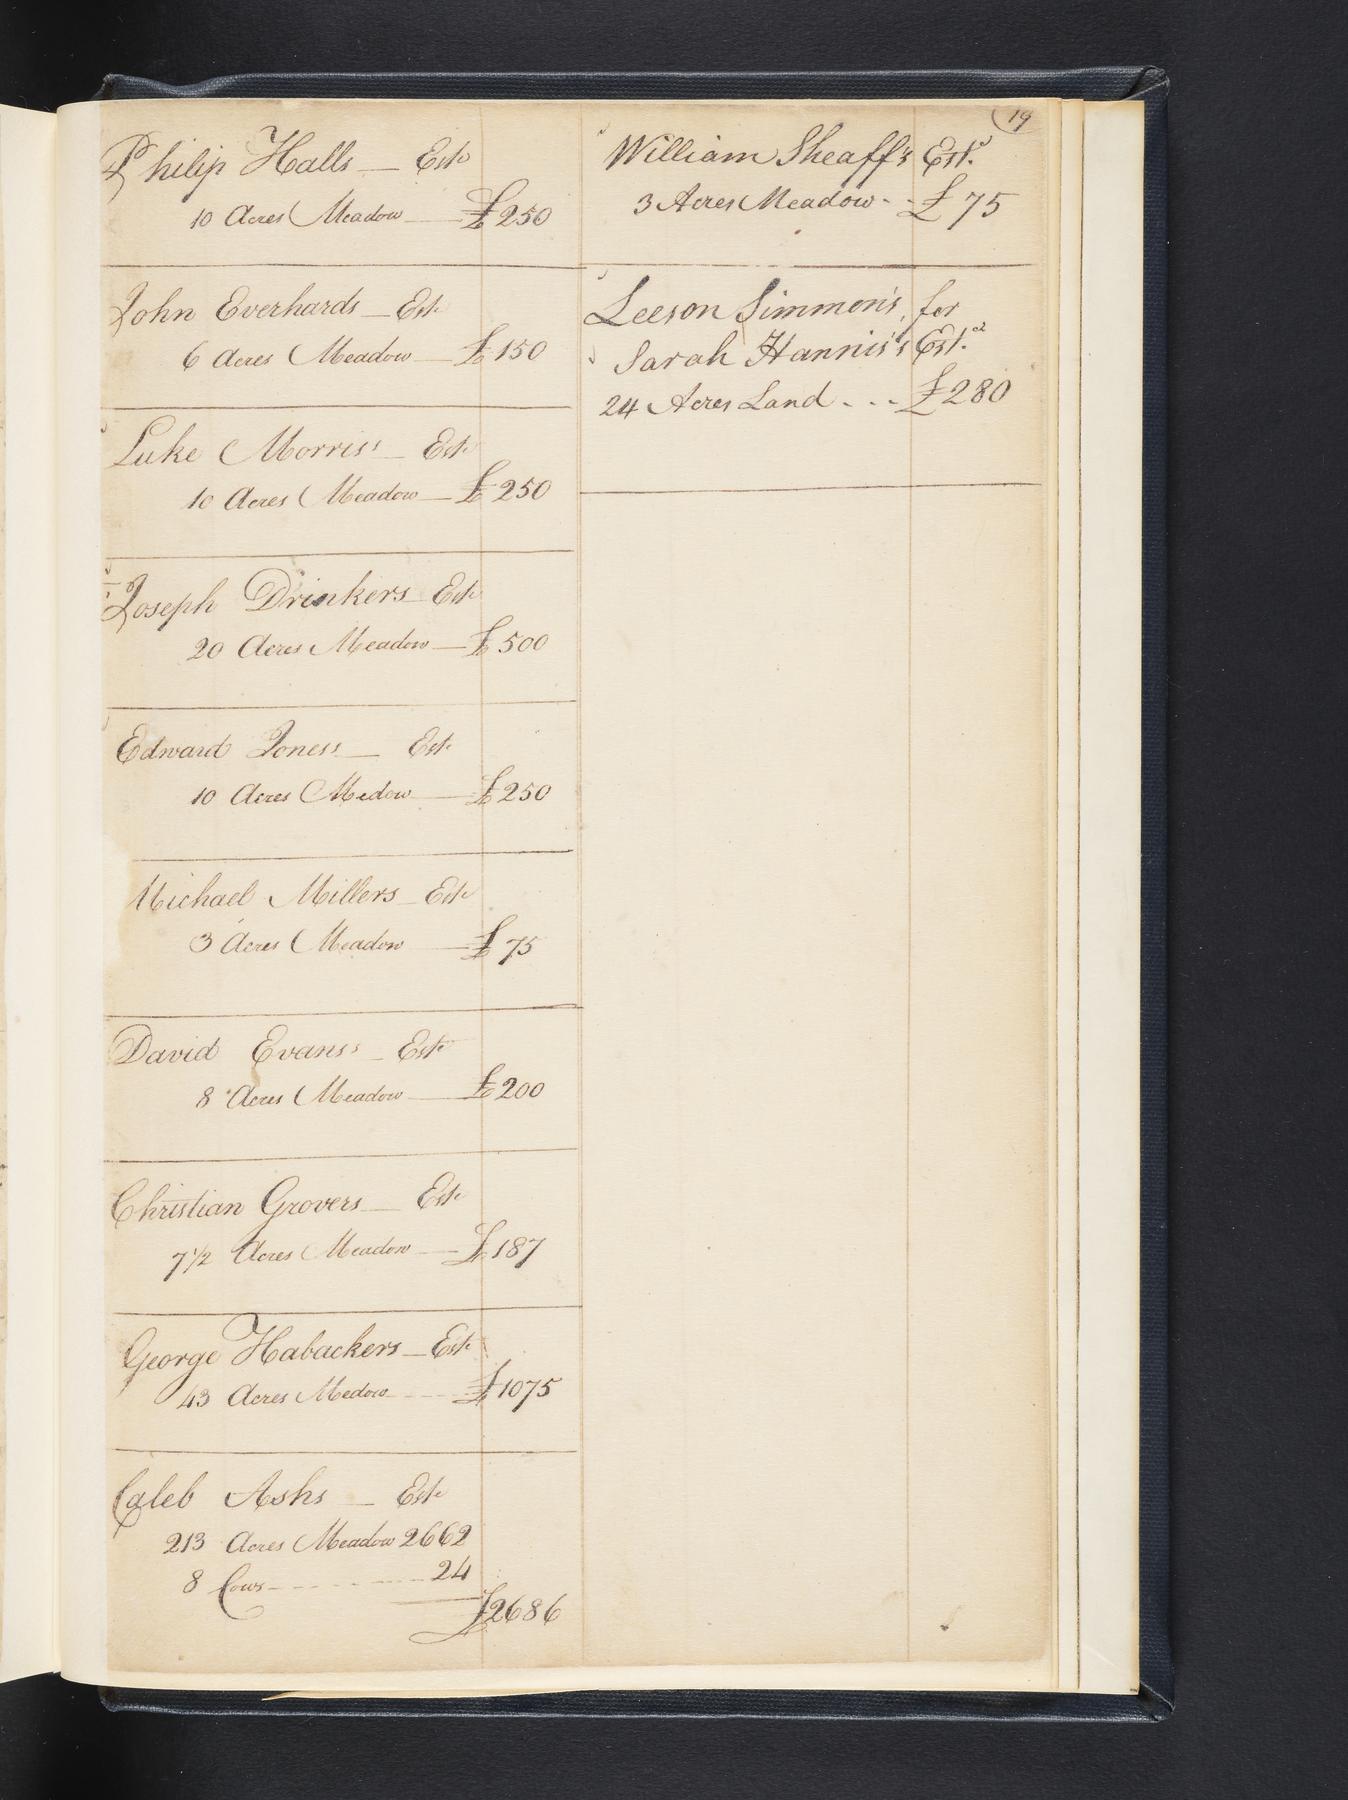 19
Philip Halls — Este
10 Acres Meadow — £250
John Everhards — Este
6 Acres Meadow — £150
Luke Morris's — Este
10 Acres Meadow — £250
Joseph Drinkers — Este
20 Acres Meadow — £500
Edward Jones's — Este
10 Acres Medow — £250
Michael Millers — Este
3 Acres Meadow — £75
David Evans's — Este
8 Acres Meadow — £200
Christian Grovers — Este
7 1/2 Acres Meadow — £187
George Habackers — Este
43 Acres Medow - - - - £1075
Caleb Ashs — Este
213 Acres Meadow 2662
8 Cows - - - - - - - 24
£2686
William Sheaff's Est.
3 Acres Meadow - - £75
Leeson Simmon's, for
Sarah Hannis's Est.
24 Acres Land - - - £280